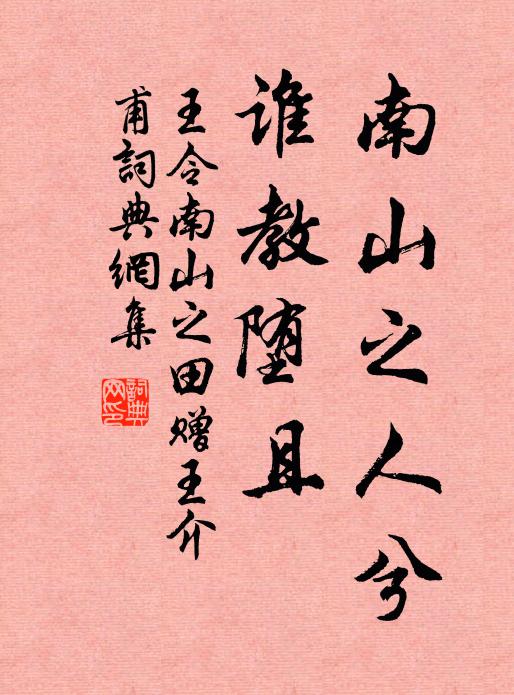 南山之人兮
谁教堕且
王令南山之田赠王介
甫詞典網集
詞典
网印